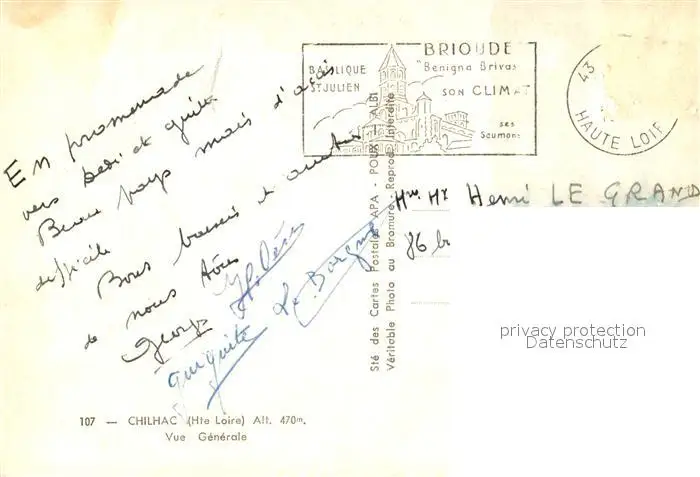 BRIOUDE
BASILIQUE "Benigna Brivas
ST JULIEN SON CLIMAT
ses
Saumons
43
HAUTE LOIRE
En promenade
vers Dédé et guite
Beau pays mais d'accès
difficile
Bons baisers et amitiés
de nous tous
Georges
Le Borgne
Henri LE GRAND
86 b
Sté des Cartes Postales APA - POUX - ALBI
Véritable Photo au Bromure - Reprod. Interdite
privacy protection
Datenschutz
107 — CHILHAC (Hte Loire) Alt. 470m.
Vue Générale